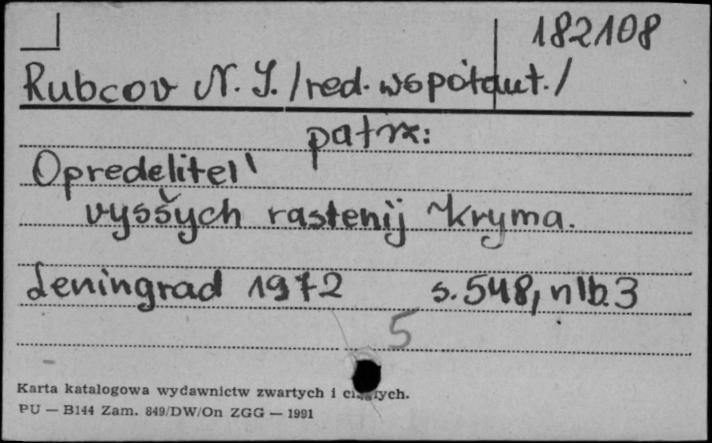 182108
Rubcov N. I. /red. współaut./
patrz:
Opredelitel'
vysšych rastenij Kryma.
Leningrad 1972 s. 548, nlb. 3
5
Karta katalogowa wydawnictw zwartych i
PU — B144 Zam. 849/DW/On ZGG — 1991